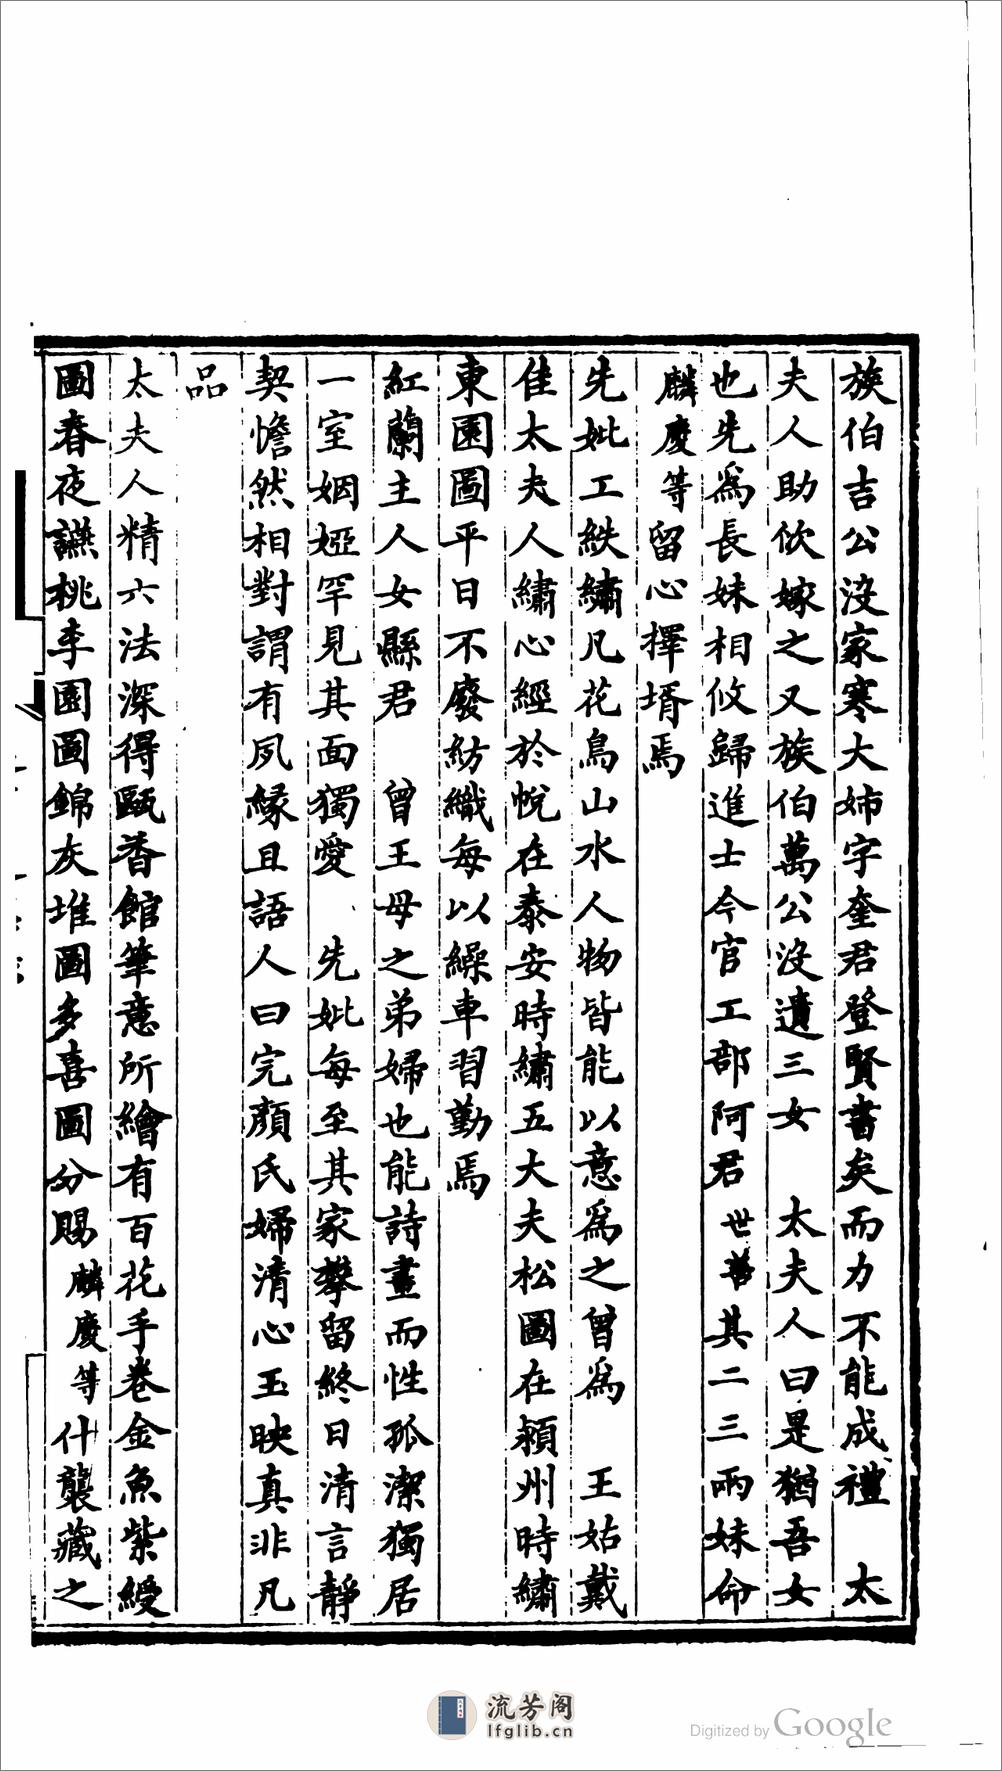 族伯吉公沒家寒大姉字奎君登賢書矣而力不能成禮　太
夫人助佽嫁之又族伯萬公沒遺三女　太夫人曰是猶吾女
也先爲長妹相攸歸進士今官工部阿君世善其二三兩妹命
麟慶等留心擇壻焉
先妣工紩繡凡花鳥山水人物皆能以意爲之曾爲　王姑戴
佳太夫人繡心經於帨在泰安時繡五大夫松圖在潁州時繡
東園圖平日不廢紡織每以繰車習勤焉
紅蘭主人女縣君　曾王母之弟婦也能詩畫而性孤潔獨居
一室姻婭罕見其面獨愛　先妣每至其家攀留終日清言靜
契憺然相對謂有夙緣且語人曰完顏氏婦清心玉映真非凡
品
太夫人精六法深得甌香館筆意所繪有百花手卷金魚紫綬
圖春夜讌桃李園圖錦灰堆圖多喜圖分賜麟慶等什襲藏之
流芳阁
lfglib.cn
Digitized by Google